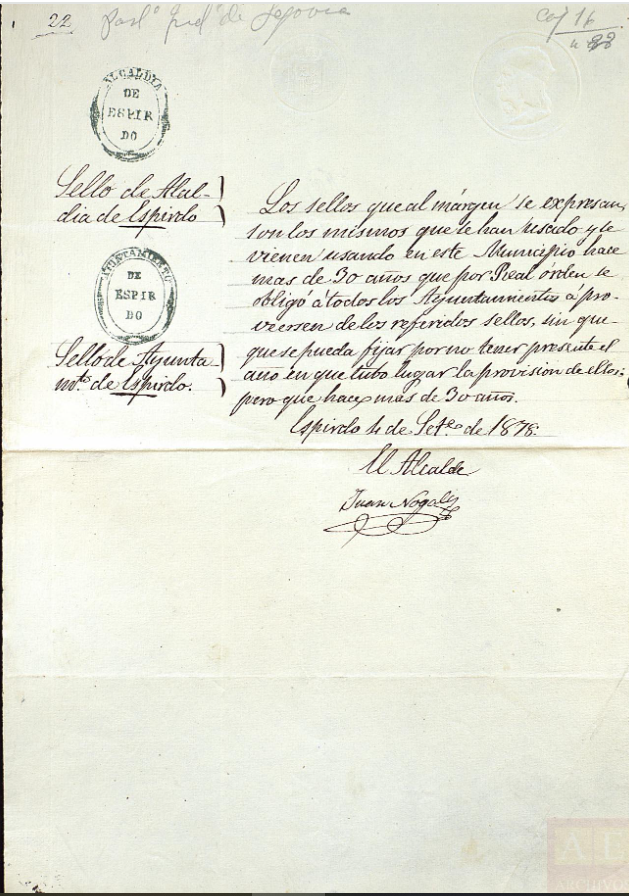 22 Part.º Jud.º de Segovia
Caj 16
n 22
ALCALDIA
DE
ESPIR
DO
Sello de Alcal-
dia de Espirdo
AYUNTAMIENTO
DE
ESPIR
DO
Sello de Ayunta
nto. de Espirdo.
Los sellos que al márgen se expresan,
son los mismos que se han usado y se
vienen usando en este Municipio hace
mas de 30 años que por Real orden se
obligó á todos los Ayuntamientos á pro-
veersen de los referidos sellos, sin que
que se pueda fijar por no tener presente el
año en que tubo lugar la provision de ellos:
pero que hace mas de 30 años.
Espirdo 4 de Set.e de 1878.
El Alcalde
Juan Nogales